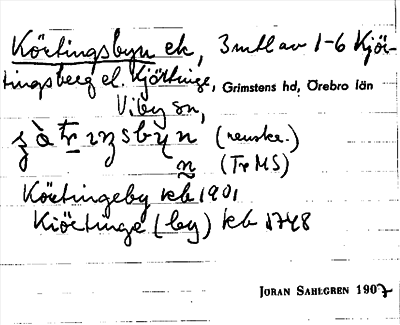 Körtingsbyn ek, 3 mtl av 1-6 Kjör-
tingsberg el. Kjörtinge, Grimstens hd, Örebro län
Viby sn,
(renske.)
n (Tr MS)
Körtingeby kb 1901
Kiörtinge (by) kb 1748
JORAN SAHLGREN 1907